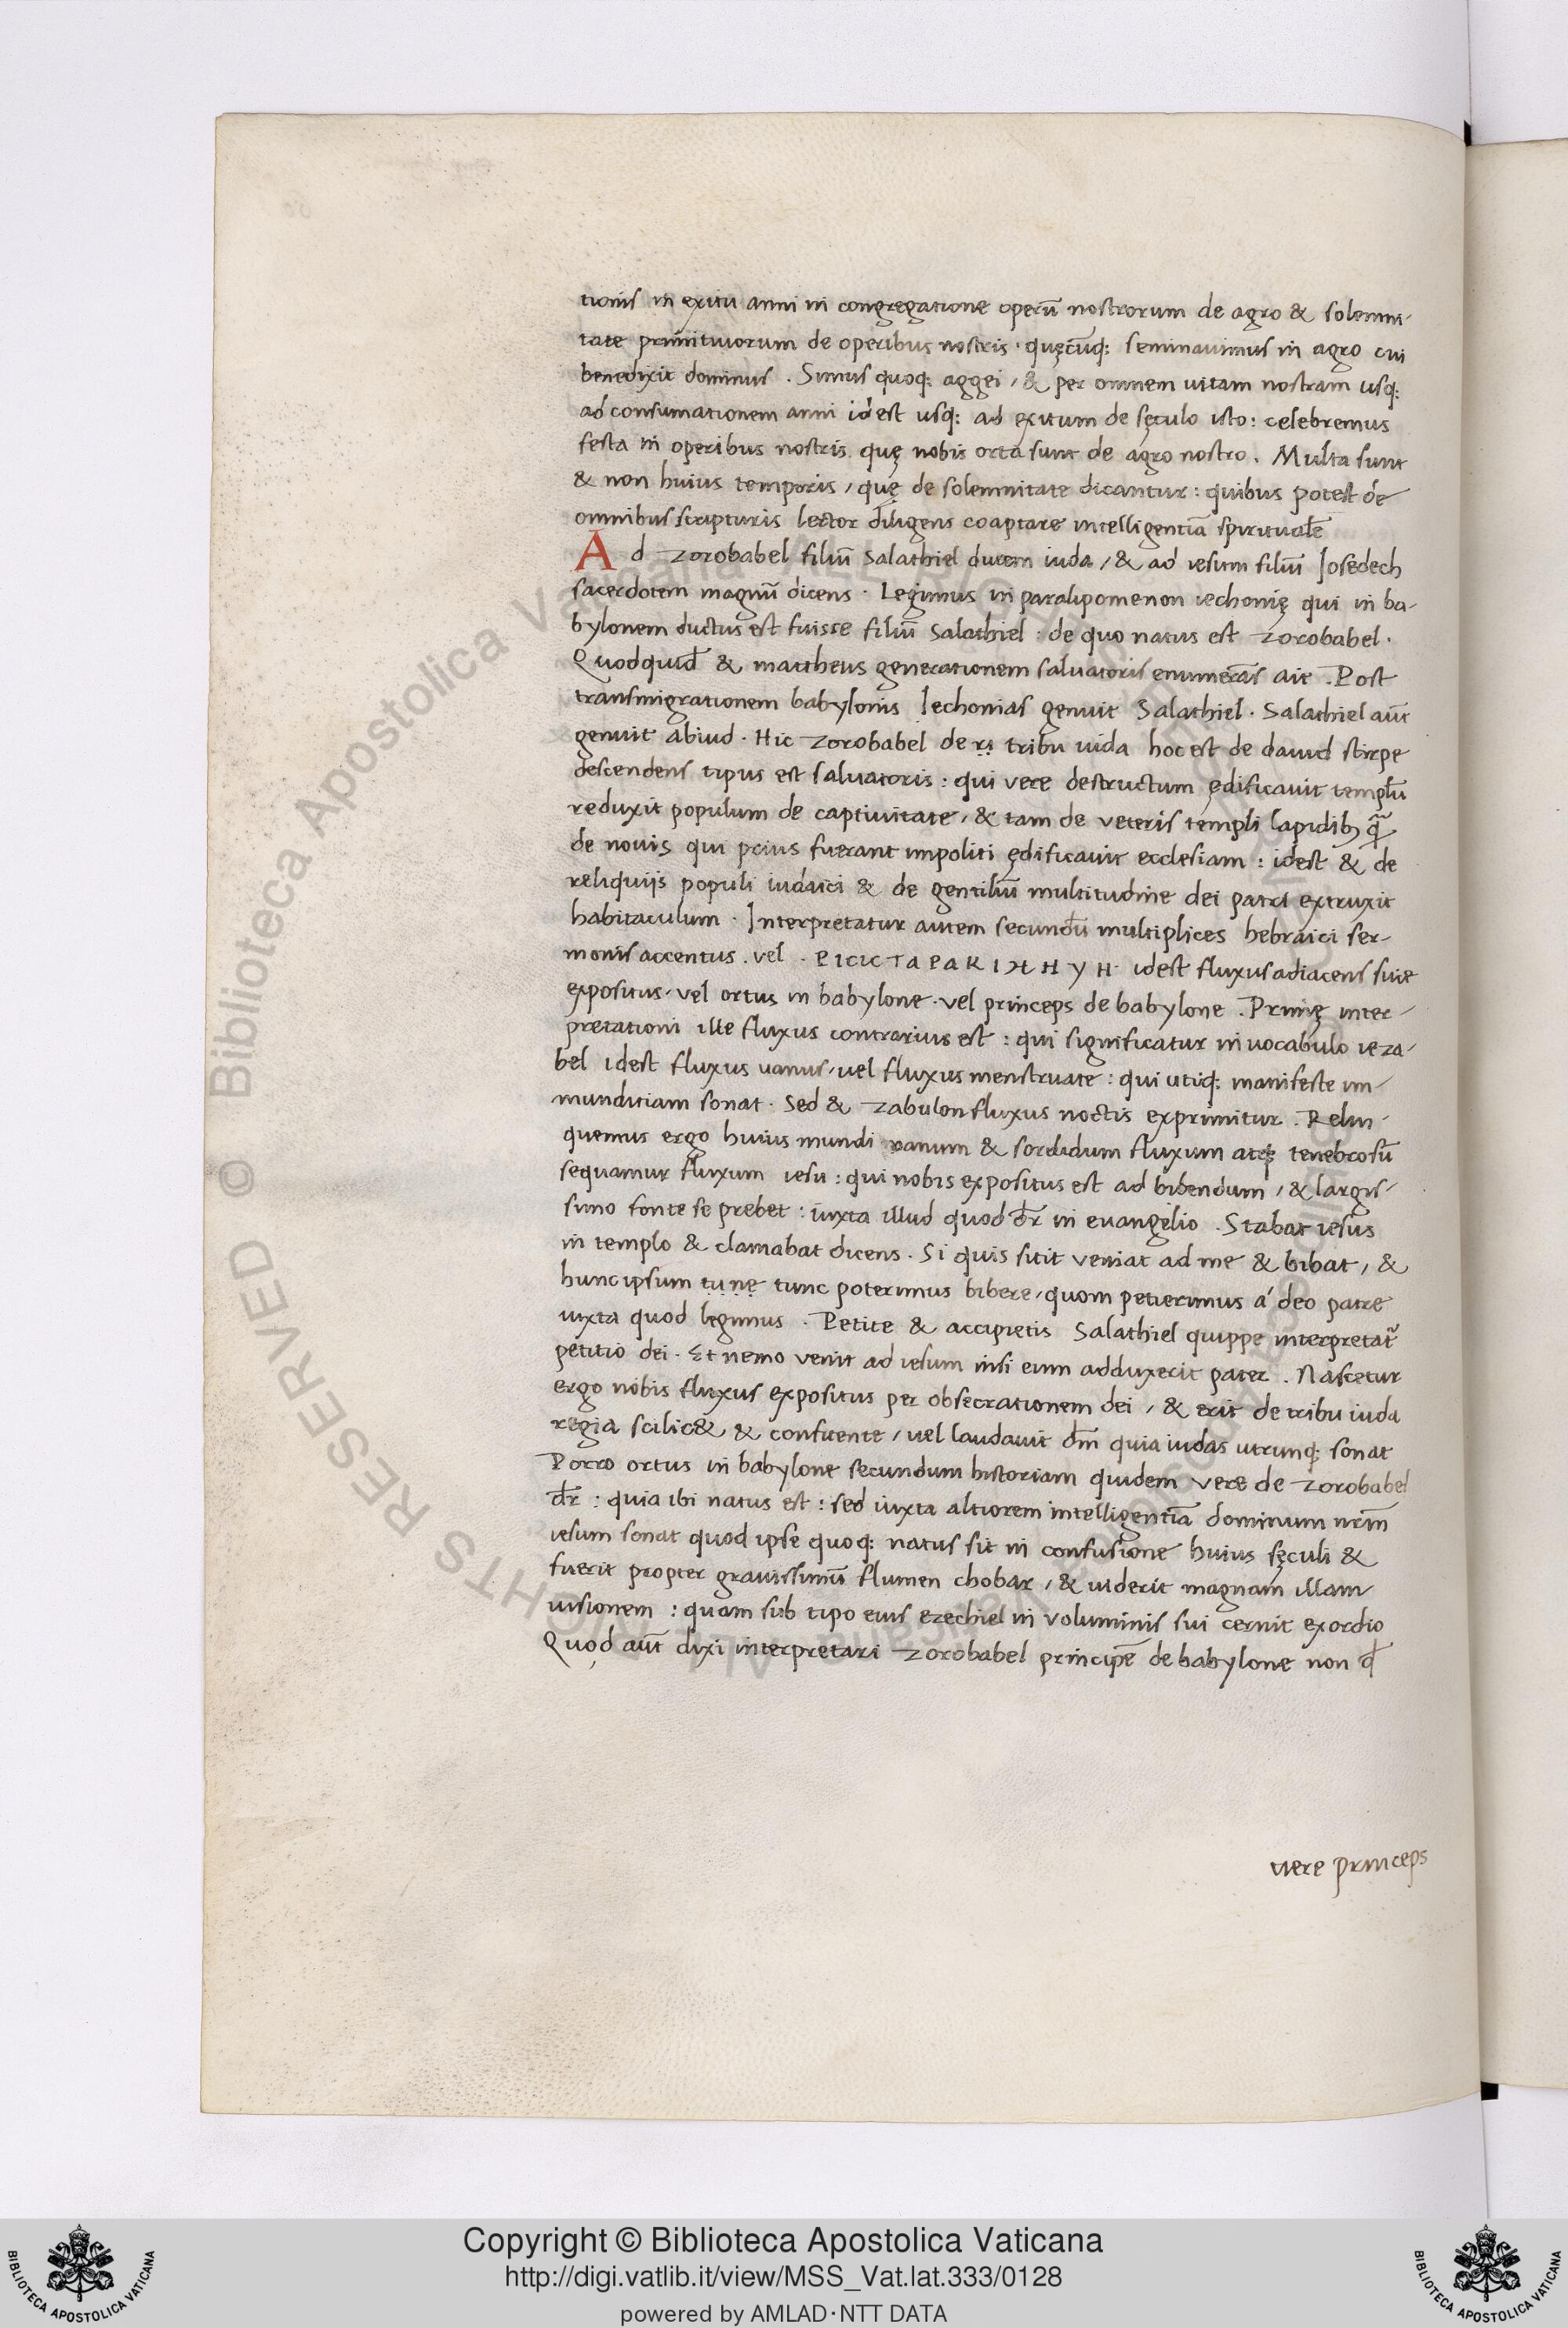 tionis in exitu anni in congregatione operū nostrorum de agro & solemni-
tate primitivorum de operibus nostris · quęcūq; seminavimus in agro cui
benedixit dominus . Simus quoq; aggei / & per omnem vitam nostram usq;
ad consumationem anni id est usq; ad exitum de sęculo isto : celebremus
festa in operibus nostris quę nobis orta sunt de agro nostro . Multa sunt
& non huius temporis / quę de solemnitate dicantur : quibus potest de
omnibus scripturis lector diligens coaptare intelligentiā spiritualē
Ad zorobabel filiū salathiel ducem iuda / & ad iesum filiū Iosedech
sacerdotem magnū dicens · Legimus in paralipomenon iechonię qui in ba-
bylonem ductus est fuisse filiū salathiel : de quo natus est zorobabel ·
Quodquid̄ & mattheus generationem salvatoris enumerās ait . Post
transmigrationem babylonis Iechonias genuit Salathiel · Salathiel aūt
genuit abiud · Hic zorobabel de ṛị tribu iuda hoc est de david stirpe
descendens tipus est salvatoris : qui vere destructum ędificavit templū
reduxit populum de captivitate / & tam de veteris templi lapidibꝫ q̄ꝫ
de novis qui prius fuerant impoliti ędificavit ecclesiam : idest & de
reliquijs populi iudaici & de gentiliū multitudine dei patri extruxit
habitaculum · Interpretatur autem secundū multiplices hebraici ser-
monis accentus . vel · PICICTAPAKIMHYH · idest fluxus adiacens sive
expositus · vel ortus in babylone · vel princeps de babylone . Primę inter-
pretationi ille fluxus contrarius est : qui significatur in vocabulo ieza-
bel idest fluxus vanus / vel fluxus menstruate : qui utiq; manifeste im-
munditiam sonat · Sed & zabulon fluxus noctis exprimitur . Relin-
quemus ergo huius mundi vanum & sordidum fluxum atq; tenebrosū
sequamur fluxum iesu : qui nobis expositus est ad bibendum / & largis-
simo fonte se prebet : iuxta illud quod dr̄ in evangelio . Stabat iesus
in templo & clamabat dicens . Si quis sitit veniat ad me & bibat / &
hunc ipsum ṭụṇẹ tunc poterimus bibere / quom petierimus á deo patre
iuxta quod legimus · Petite & accipietis Salathiel quippe interpretat̄
petitio dei · Et nemo venit ad iesum nisi eum adduxerit pater . Nascetur
ergo nobis fluxus expositus per obsecrationem dei / & erit de tribu iuda
regia scilic& & confitente / vel laudavit dm̄ quia iudas utrunq; sonat
Porro ortus in babylone secundum historiam quidem vere de zorobabel
dr̄ : quia ibi natus est : sed iuxta altiorem intelligentiā dominum nrm̄
iesum sonat quod ipse quoq; natus sit in confusione huius sęculi &
fuerit propter gravissimū flumen chobar / & viderit magnam illam
visionem : quam sub tipo eius ezechiel in voluminis sui cernit exordio
Quod aūt dixi interpretari zorobabel principē de babylone non qđ
vere princeps
Biblioteca Apostolica Vaticana
ALL RIGHTS RESERVED ©
Copyright © Biblioteca Apostolica Vaticana
http://digi.vatlib.it/view/MSS_Vat.lat.333/0128
powered by AMLAD·NTT DATA
BIBLIOTECA APOSTOLICA VATICANA
BIBLIOTECA APOSTOLICA VATICANA